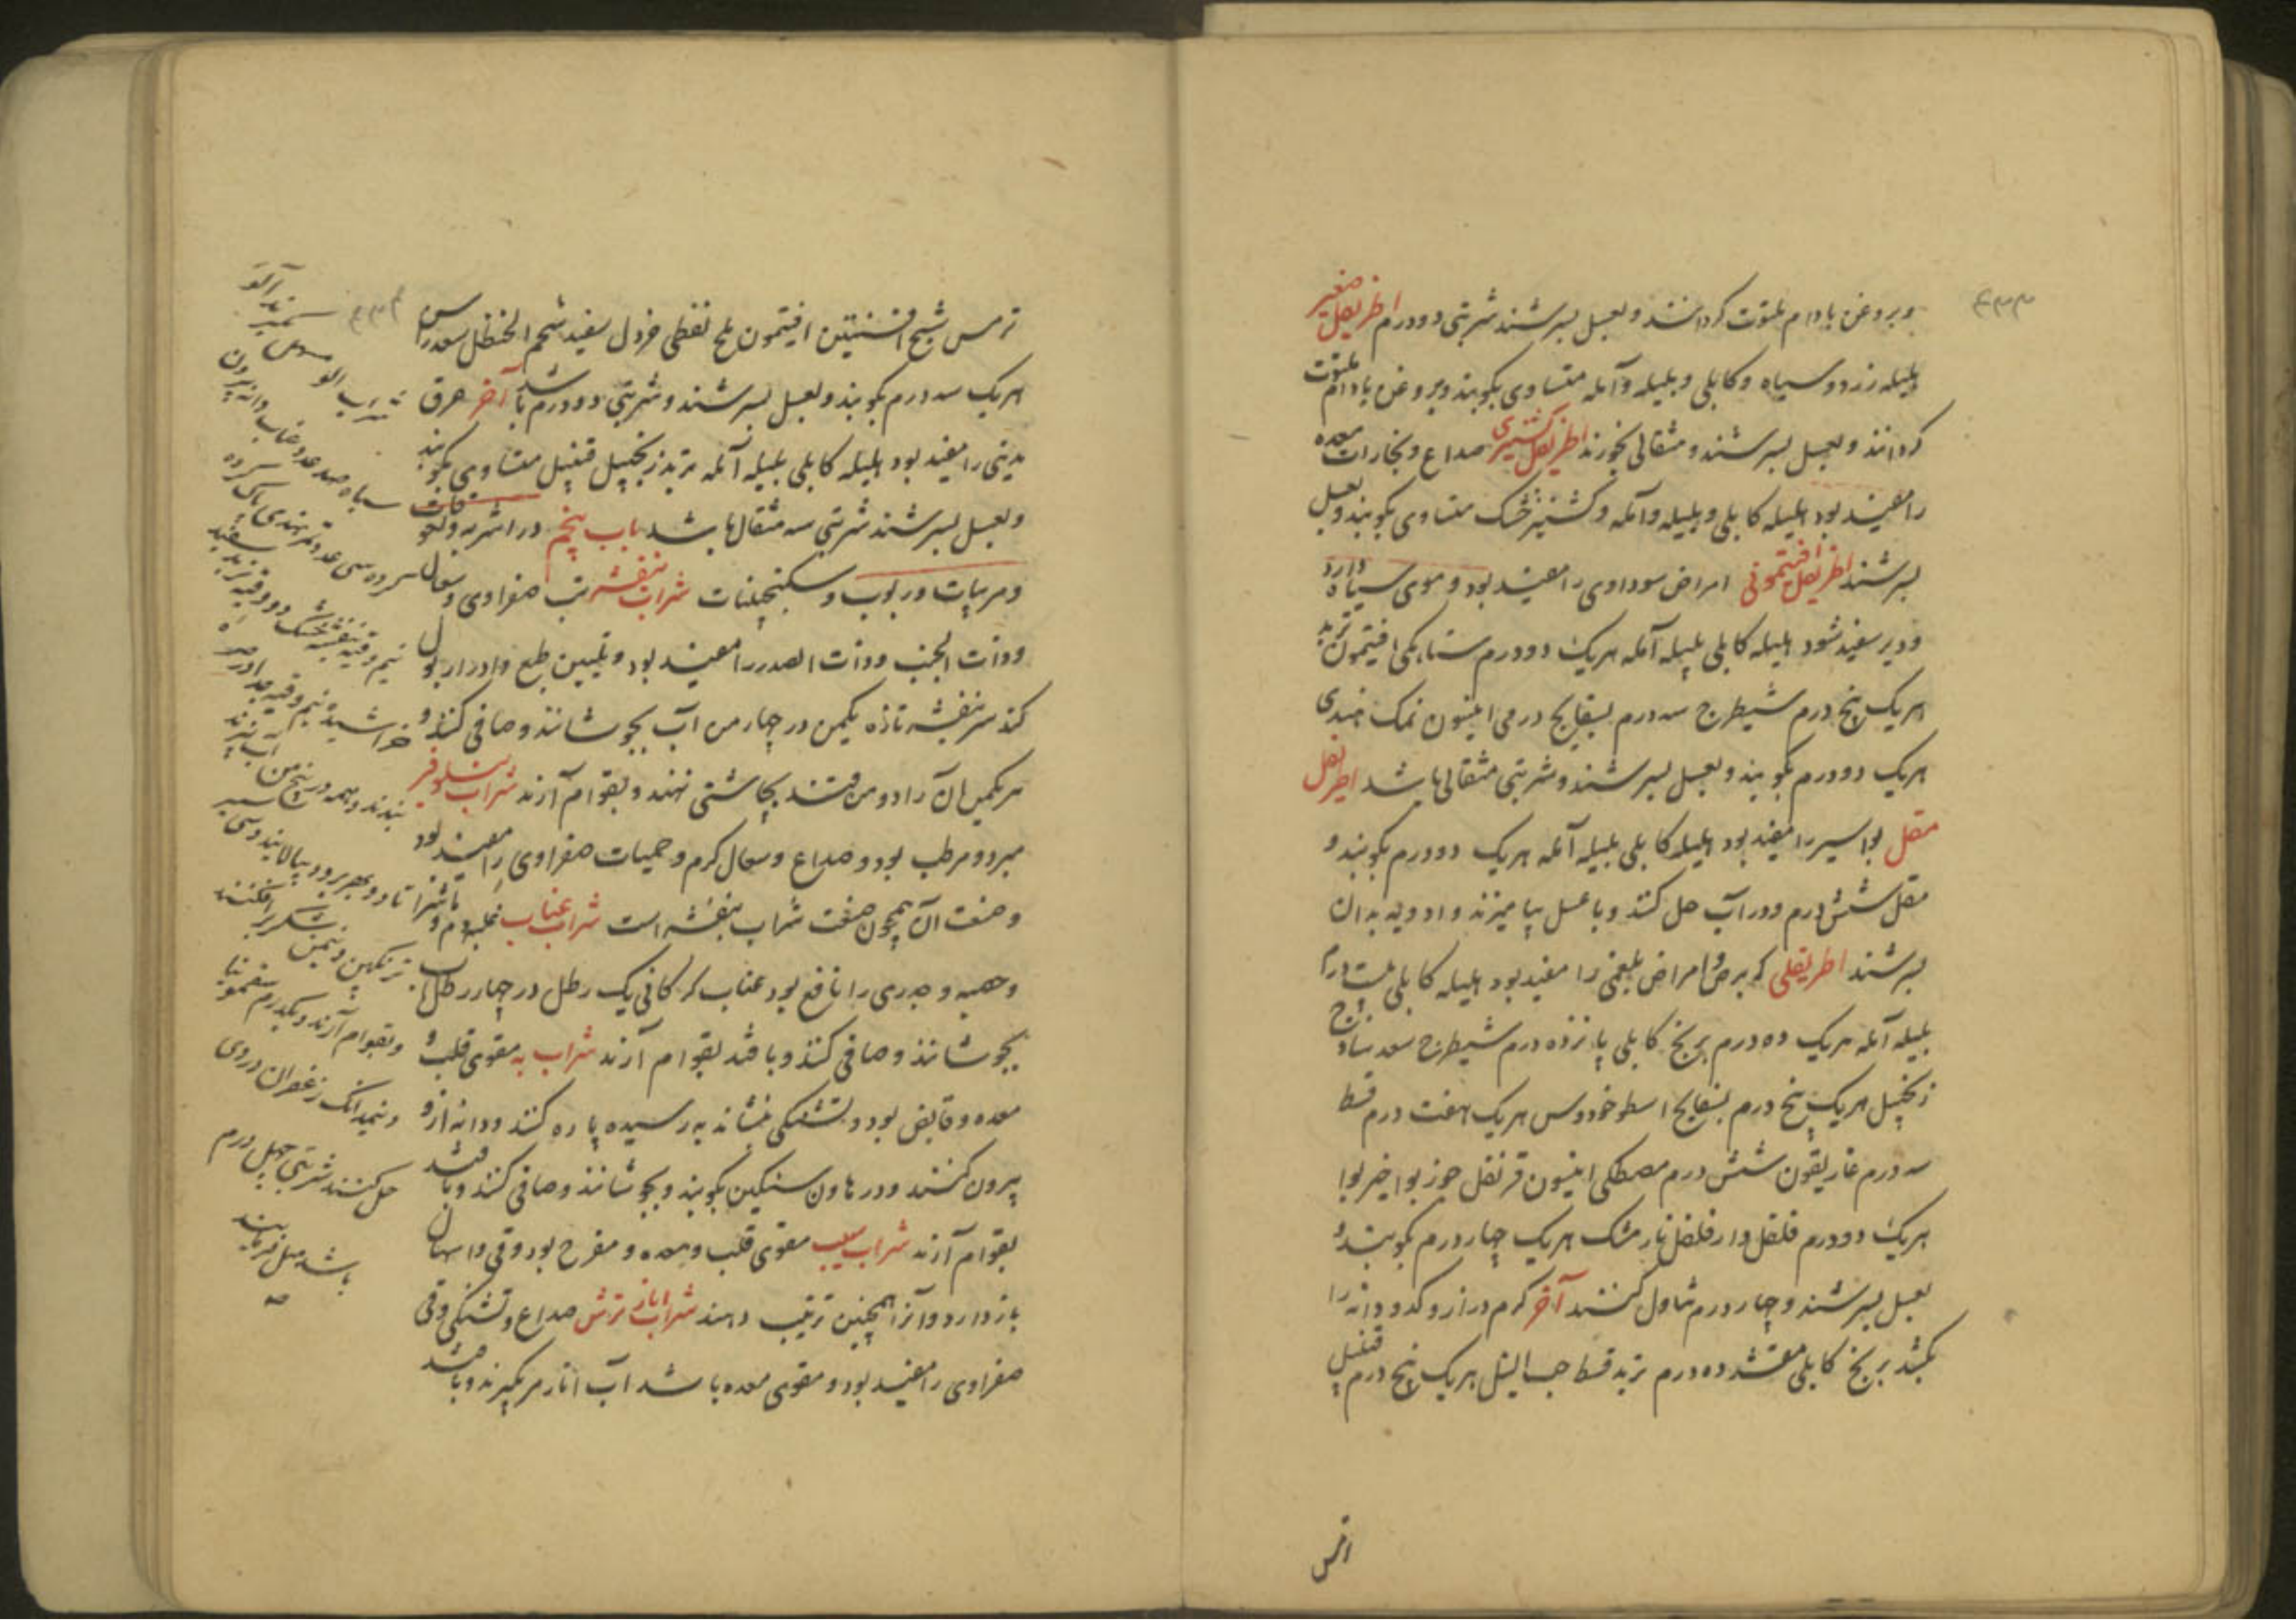 وبروغن بادام ملتوت کردانند وبعسل بسرشند شربتی دودرم اطریفل صغیر
هلیله زرد وسیاه وکابلی وبلیله وآمله متساوی بکوبند وبروغن بادام ملتوت
کردانند وبعسل بسرشند ومثقالی بخورند اطریفل کشنیزی صداع وبخارات معده
را مفید بود هلیله کابلی وبلیله وآمله وکشنیز خشک متساوی بکوبند وبعسل
بسرشند اطریفل افتیمونی امراض سوداوی را مفید بود وموی سیاه دارد
ودیر سفید شود هلیله کابلی بلیله آمله هریک دودرم سناء مکی افتیمون تربد
هریک پنج درم شیطرج سه درم بسفایج درمی انیسون نمک هندی
هریک دودرم بکوبند وبعسل بسرشند وشربتی مثقالی باشد اطریفل
مقل بواسیر را مفید بود هلیله کابلی بلیله آمله هریک دودرم بکوبند و
مقل شش درم ودرآب حل کنند وبا عسل بیامیزند وادویه بدان
بسرشند اطریفلی که برص وامراض بلغمی را مفید بود هلیله کابلی بیست درم
بلیله آمله هریک ده درم برنج کابلی پانزده درم شیطرج سعد ساذج
زنجبیل هریک پنج درم بسفایج اسطوخودوس هریک هفت درم قسط
سه درم غاریقون شش درم مصطکی انیسون قرنفل جوز بوا خیر بوا
هریک دودرم فلفل دار فلفل نارمشک هریک چهار درم بکوبند و
بعسل بسرشند وچهار درم تناول کنند آخر کرم دراز وکدو دانه را
بکشد برنج کابلی مقشر ده درم تربد قسط حب النیل هریک پنج درم قنبیل
ترمس شیح افسنتین افتیمون ملح نفطی خردل سفید شحم الحنظل سعد راسن
هریک سه درم بکوبند وبعسل بسرشند وشربتی دودرم باشد آخر عرق
مدینی را مفید بود هلیله کابلی بلیله آمله تربد زنجبیل قنبیل متساوی بکوبند
وبعسل بسرشند شربتی سه مثقال باشد باب پنجم در اشربه ولعوقات
ومربیات وربوب وسکنجبینات شراب بنفشه تب صفراوی وسعال
وذات الجنب وذات الصدر را مفید بود وتلیین طبع وادرار بول
کند سر بنفشه تازه یکمن در چهار من آب بجوشانند وصافی کنند و
هر یکمن ازان را دومن قند بچاشنی نهند وبقوام آرند شراب نیلوفر
مبرد ومرطب بود وصداع وسعال کرم وحمیات صفراوی را مفید بود
وصنعت آن همچون صنعت شراب بنفشه است شراب عناب غلبه دم و
وحصبه وجدری را نافع بود عناب کرکانی یک رطل در چهار رطل آب
بجوشانند وصافی کنند وباقند بقوام آرند شراب به مقوی قلب و
معده وقابض بود وتشنکی بنشاند به رسیده پاره کنند ودانه ازو
بیرون کنند ودر هاون سنکین بکوبند وبجوشانند وصافی کنند وباقند
بقوام آرند شراب سیب مقوی قلب ومعده ومفرح بود وقی واسهال
باز دارد وانرا همچنین ترتیب دهند شراب انار ترش صداع وتشنکی وقی
صفراوی را مفید بود ومقوی معده باشد آب انار مز بکیرند وباقند
شراب الو
سیاه صد عدد عناب دانه بیرون
کرده سی عدد تمر هندی پاک کرده
نیم وقیه بنفشه خشک دو وقیه تربد سفید
خراشیده نیم وقیه
بندند وهمه در پنج من آب بپزند
تا دو بهر برود بپالایند وسی سیر
ترنکبین ونیمن شکر بر افکنند
وبقوام آرند ویکدرم سقمونیا
ونیمدانک زعفران دروی
حل کنند شربتی چهل درم
باشد